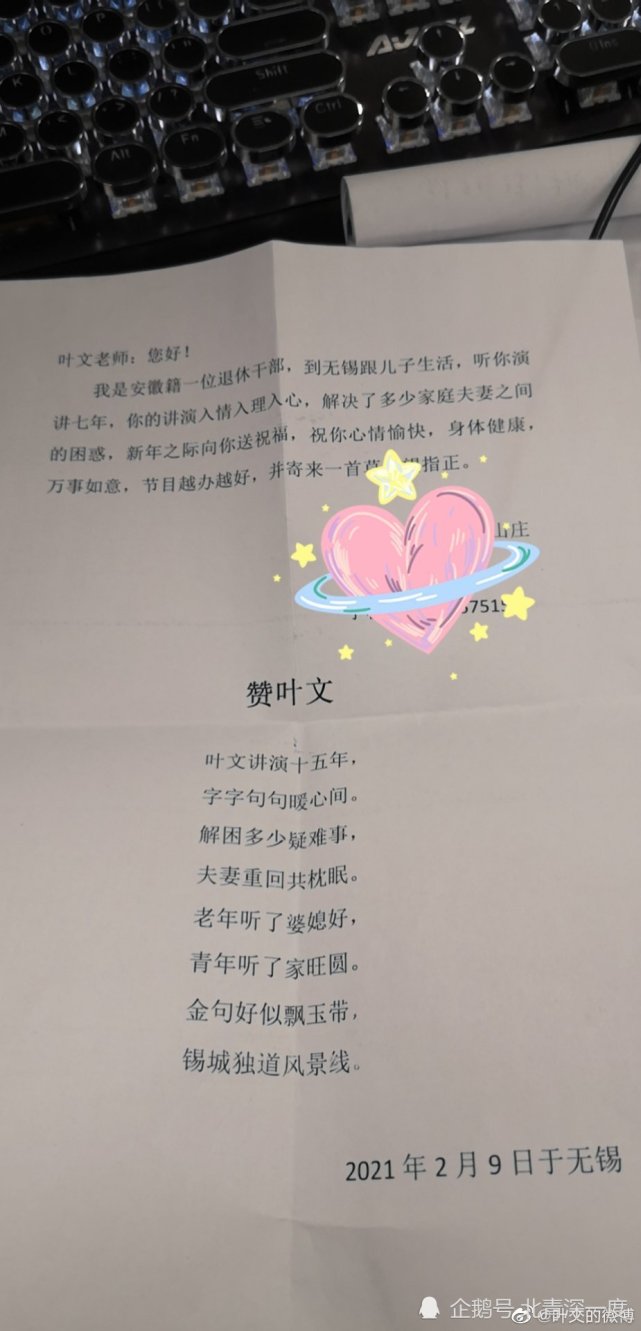 O
P
K
L
M
<
>
?
Shift
Alt
Fn
Ctrl
AJAZZ
0Ins
叶文老师：您好！
我是安徽籍一位退休干部，到无锡跟儿子生活，听你演
讲七年，你的讲演入情入理入心，解决了多少家庭夫妻之间
的困惑，新年之际向你送祝福，祝你心情愉快，身体健康，
万事如意，节目越办越好，并寄来一首 指正。
山庄
5751
赞叶文
叶文讲演十五年，
字字句句暖心间。
解困多少疑难事，
夫妻重回共枕眠。
老年听了婆媳好，
青年听了家旺圆。
金句好似飘玉带，
锡城独道风景线。
2021 年 2 月 9 日于无锡
企鹅号 北青深一度
@叶文的微博